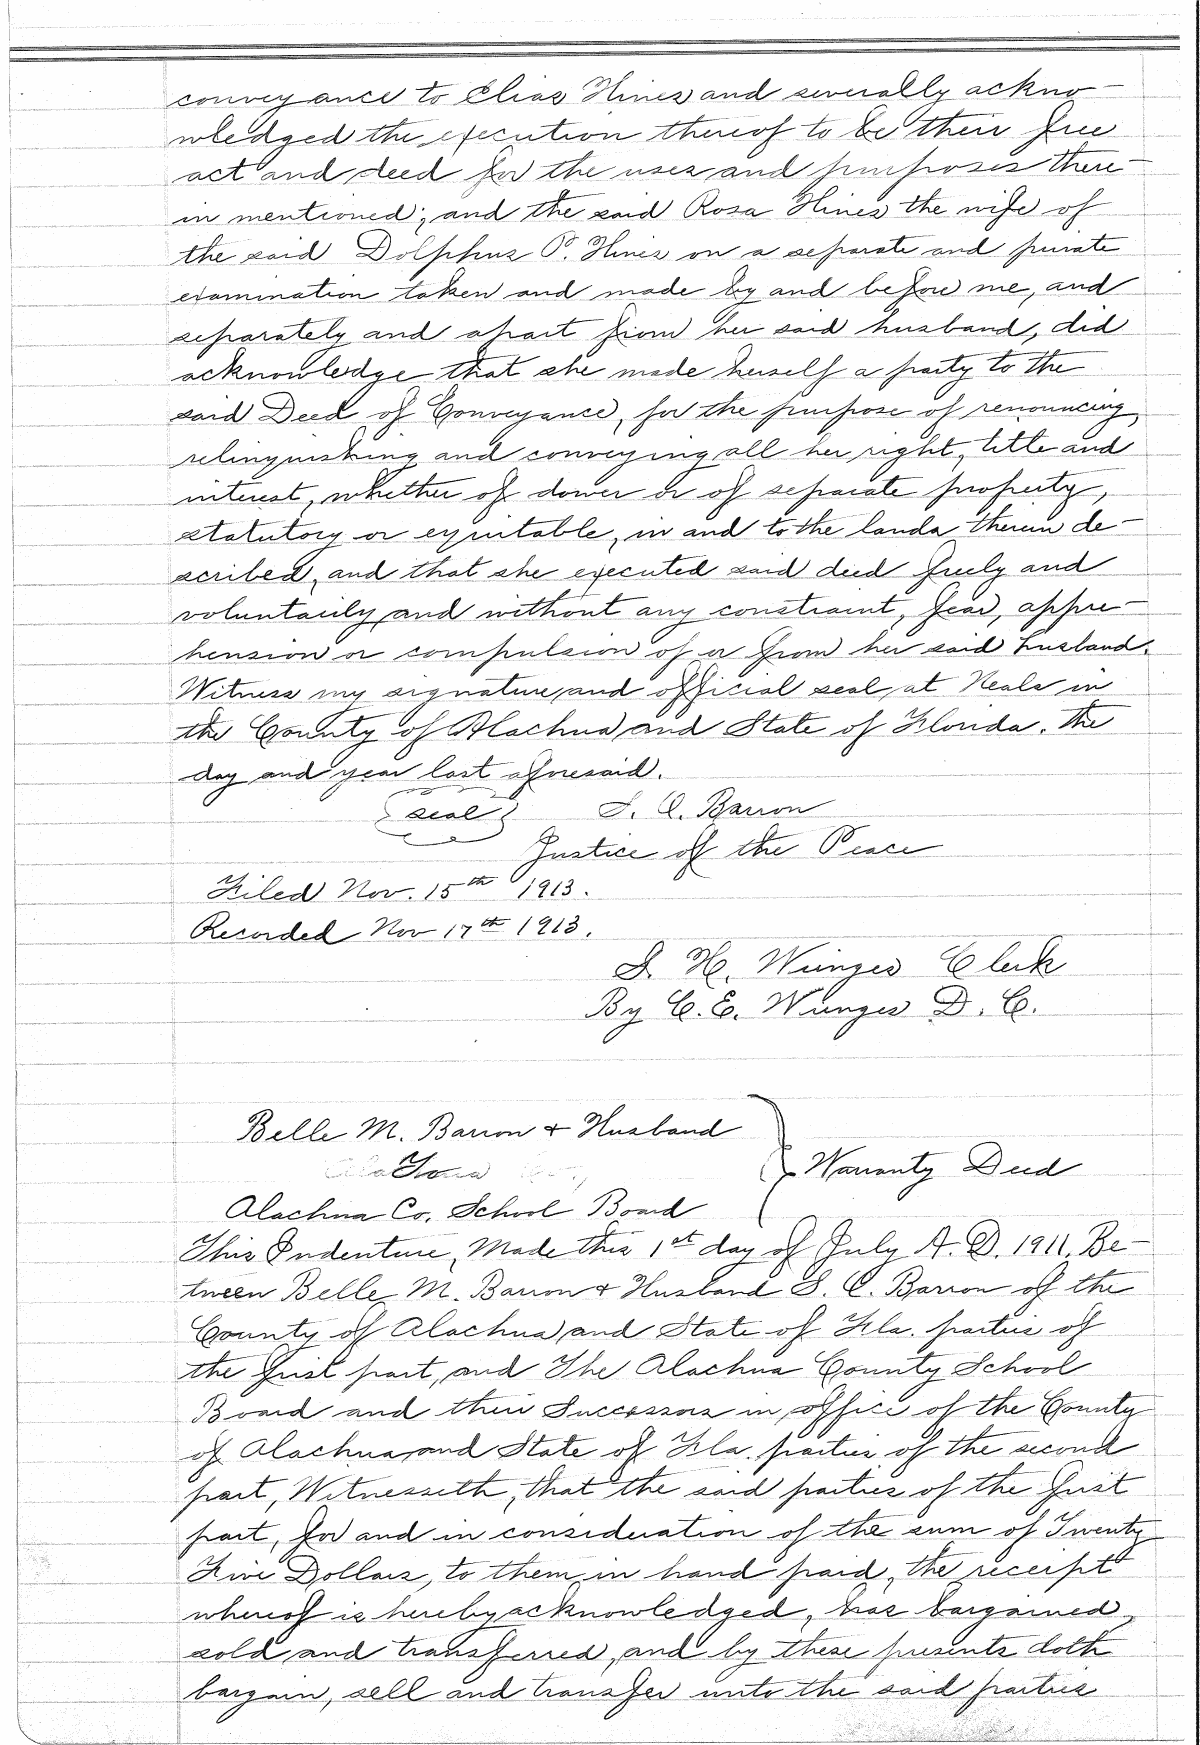 conveyance to Elias Hines and severally ackno-
wledged the execution thereof to be their free
act and deed for the uses and purposes there-
in mentioned; and the said Rosa Hines the wife of
the said Dolphus P. Hines on a separate and private
examination taken and made by and before me, and
separately and apart from her said husband, did
acknowledge that she made herself a party to the
said Deed of Conveyance, for the purpose of renouncing,
relinquishing and conveying all her right, title and
interest, whether of dower or of separate property,
statutory or equitable, in and to the lands therein de-
scribed, and that she executed said deed freely and
voluntarily and without any constraint, fear, appre-
hension or compulsion of or from her said husband.
Witness my signature and official seal at Neals in
the County of Alachua and State of Florida. the
day and year last aforesaid.
seal S. C. Barron
Justice of the Peace
Filed Nov. 15th 1913.
Recorded Nov 17th 1913.
S. H. Wienges Clerk
By C. E. Wienges D. C.
Belle M. Barron + Husband
To
Warranty Deed
Alachua Co. School Board
This Indenture, Made this 1st day of July A. D. 1911. Be-
tween Belle M. Barron + Husband S. C. Barron of the
County of Alachua and State of Fla. parties of
the first part, and The Alachua County School
Board and their Successors in office of the County
of Alachua and State of Fla. parties of the second
part, Witnesseth, that the said parties of the first
part, for and in consideration of the sum of Twenty
Five Dollars, to them in hand paid, the receipt
whereof is hereby acknowledged, has bargained,
sold and transferred, and by these presents doth
bargain, sell and transfer unto the said parties